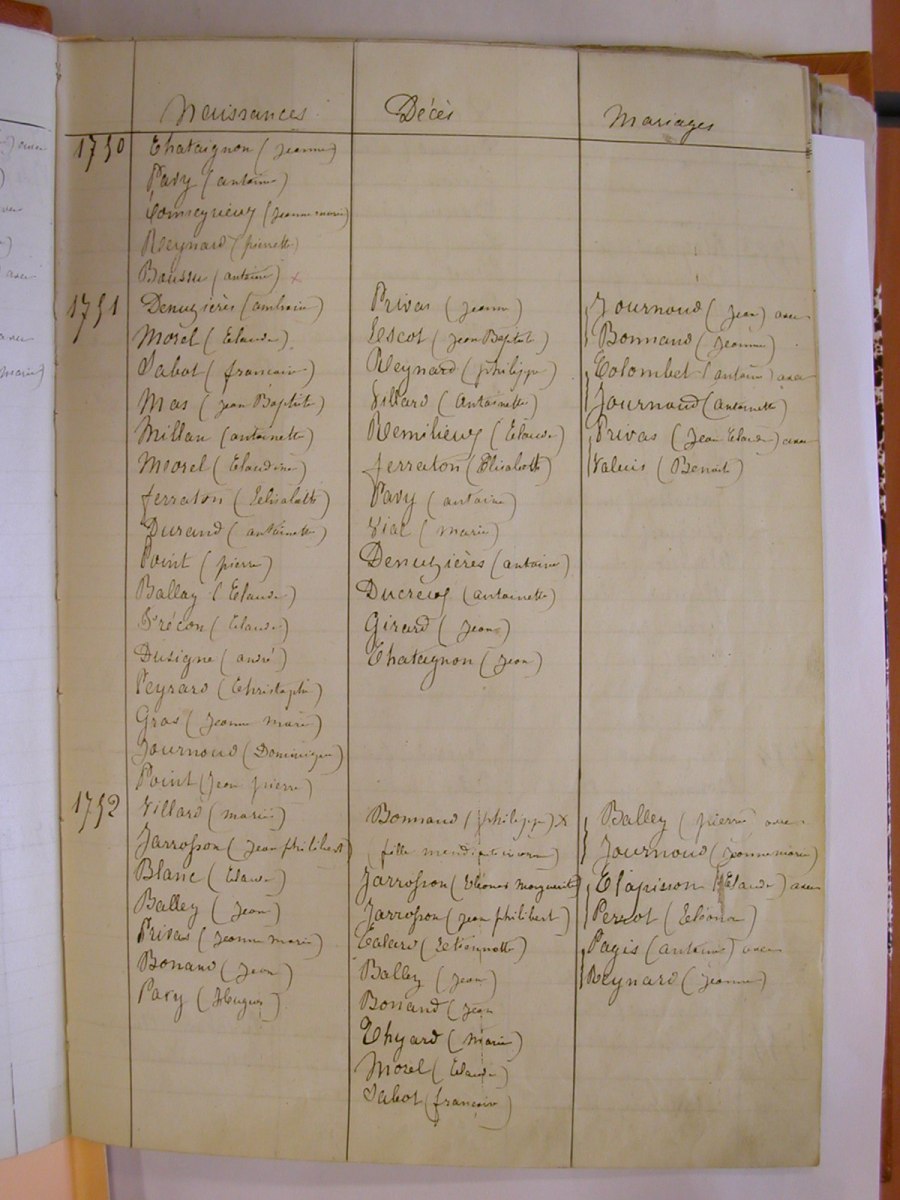 Naissances
Décès
Mariages
1750
Chataignon (Jeanne)
Pavy (antoine)
(Jeanne marie)
Reynard (pierrette)
(antoine) x
1751
Denuzières
Morel (Claude)
Sabot (francois)
Mas (Jean Baptiste)
Millan (antoinette)
Morel (Claudine)
ferraton
Durand (antoinette)
Point (pierre)
Ballay (Claude)
Précon (Claude)
Dusigne (andré)
Peyrard (Christophe)
Gros (Jeanne marie)
Journoud (Dominique)
Point (Jean pierre)
Privas (Jeanne)
Escot (Jean Baptiste)
Reynard (philippe)
Villard (Antoinette)
Remilieux (Claude)
ferraton (Elisabeth)
Pavy (antoine)
Vial (marie)
Denuzières (antoine)
Ducreux (antoinette)
Girard (Jean)
Chataignon (Jean)
Journoud (Jean) avec
Bonnand (Jeanne)
Colombet (antoine) avec
Journoud (antoinette)
Privas (Jean Claude) avec
(Benoite)
1752
Villard (marie)
Jarrosson (Jean philibert)
Blanc (Claude)
Balley (Jean)
Privas (Jeanne marie)
Bonand (Jean)
Pavy (Hugues)
Bonnand (philippe) x
(fille
Jarrosson (Marguerite)
Jarrosson (Jean philibert)
(Etiennette)
Balley (Jean)
Bonand (Jean
Thyard (Marie)
Morel (Claude)
Sabot (françoise)
Balley (pierre) avec
Journoud (Jeanne marie)
Clapisson (Claude) avec
(Eléonore)
Pagis (antoine) avec
Reynard (Jeanne)